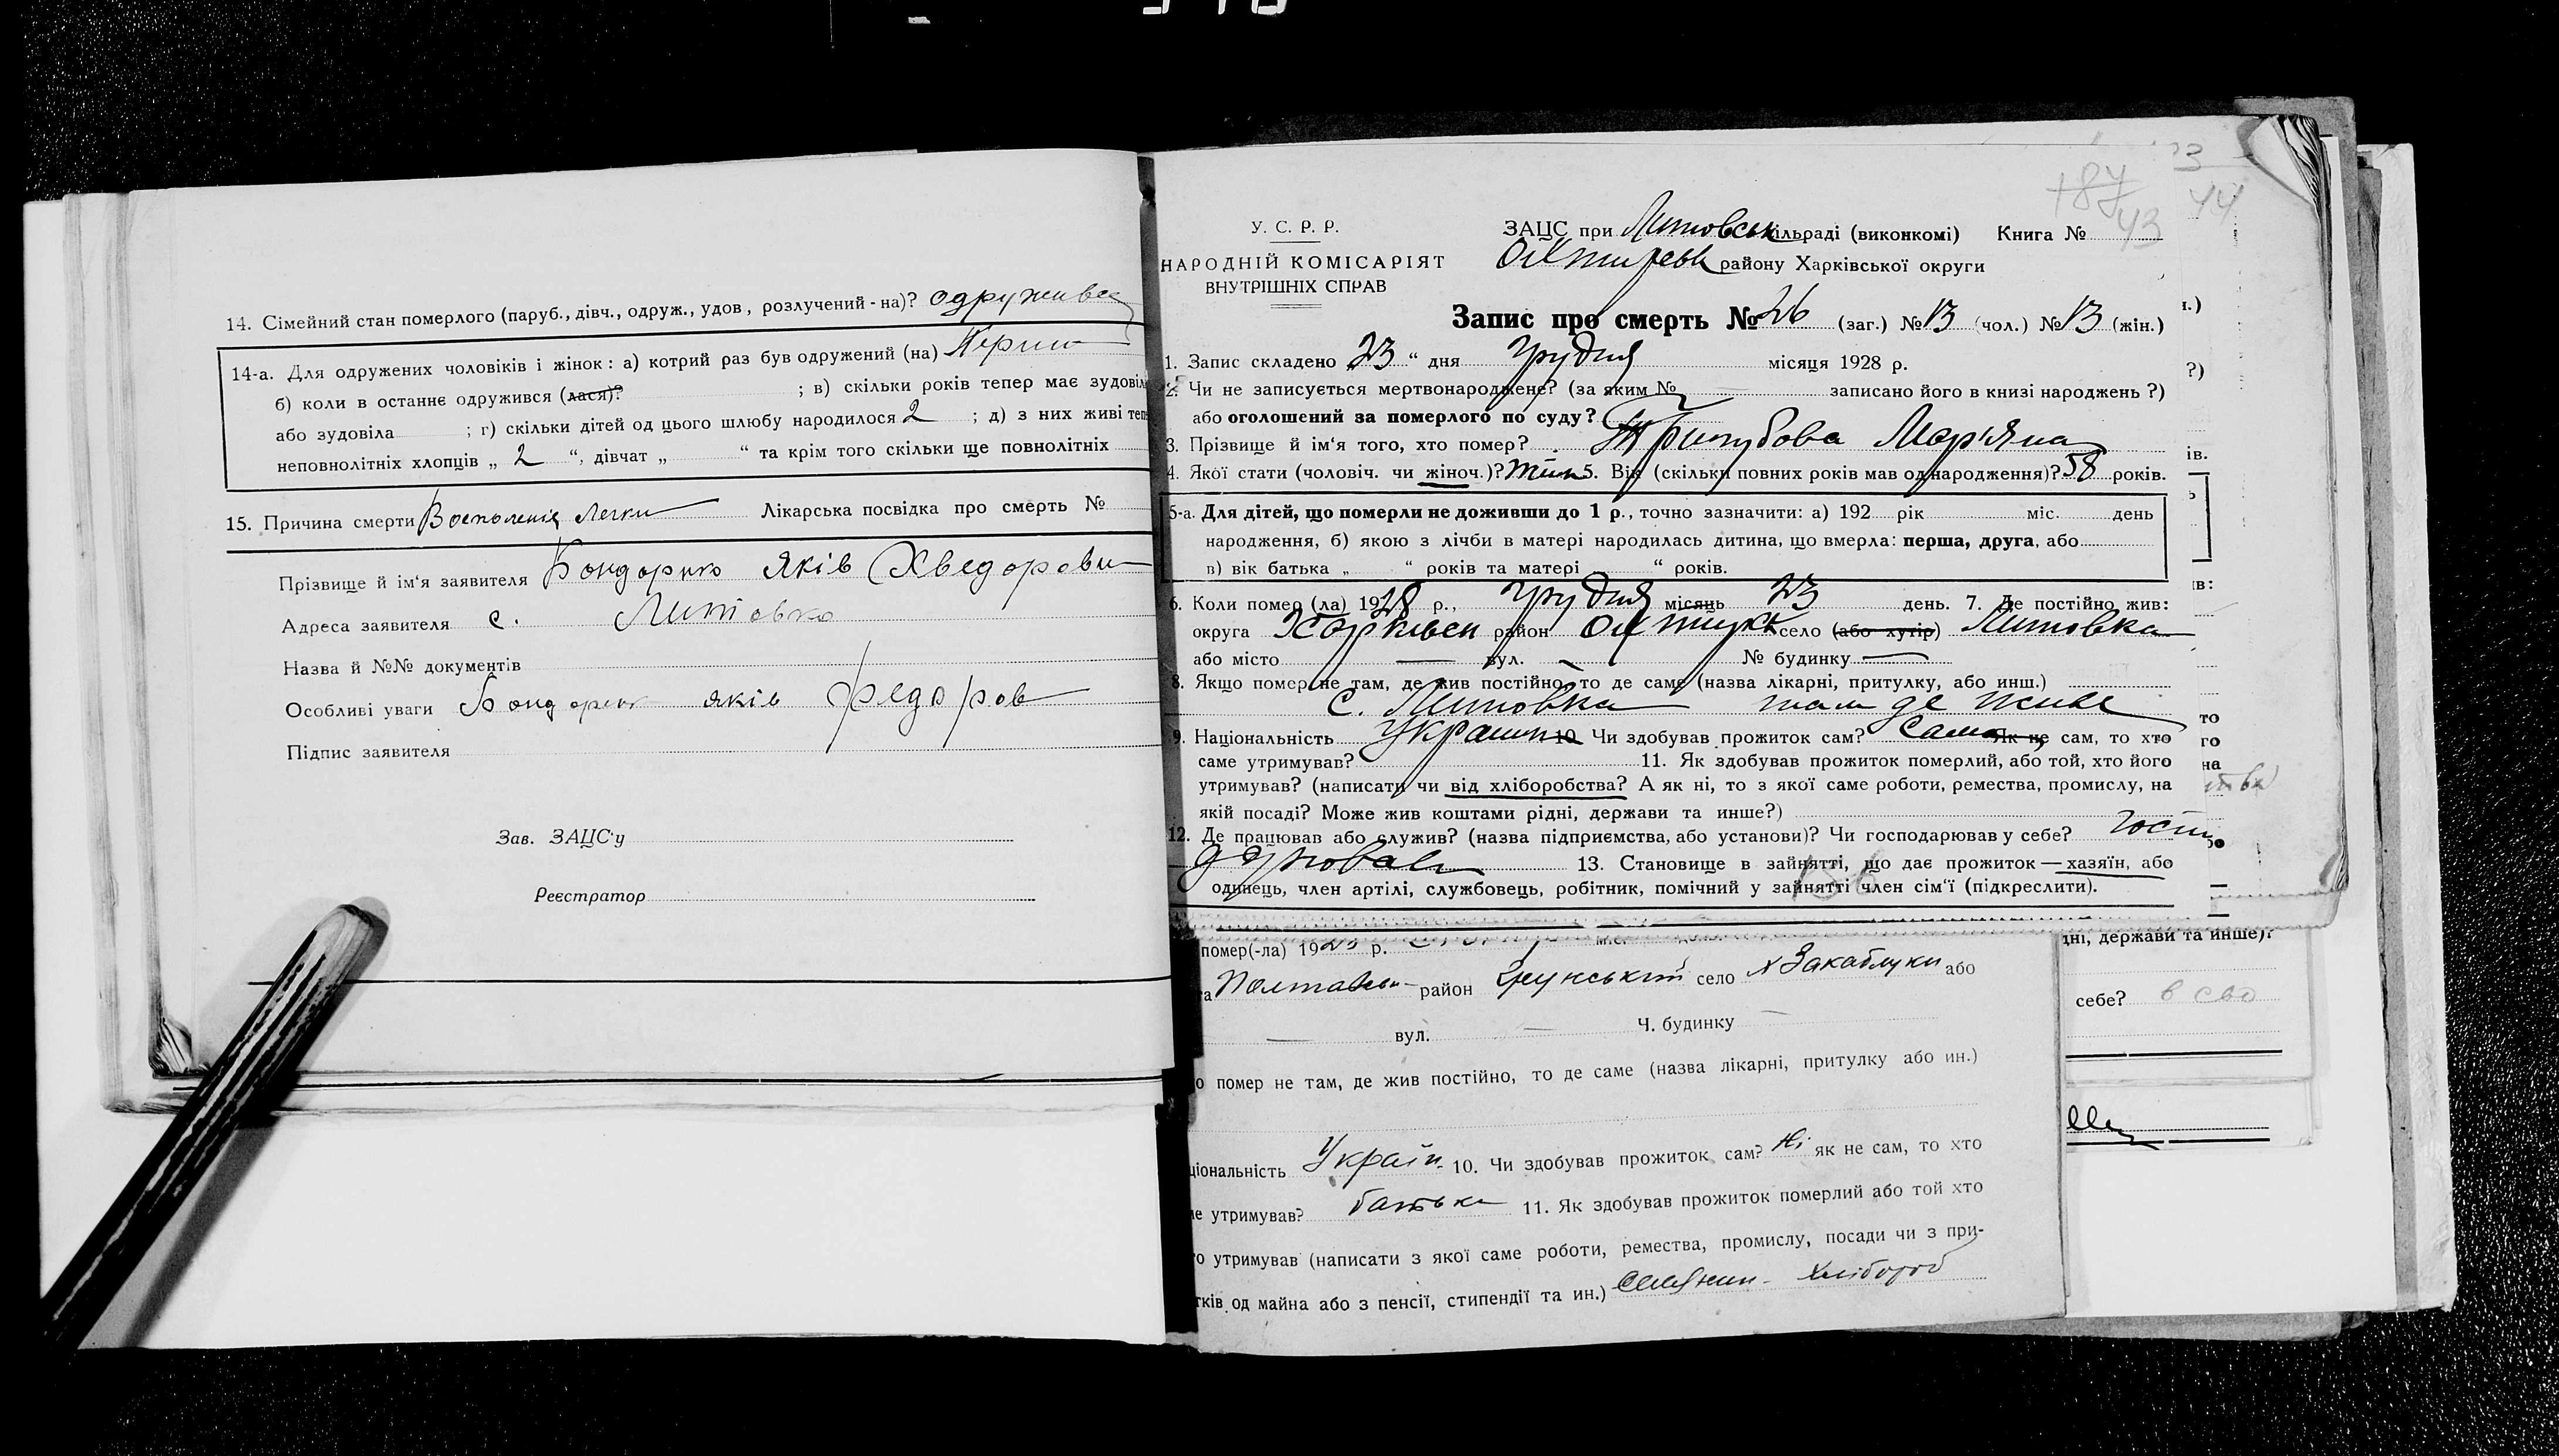 14. Сімейний стан померлого (паруб., дівч., одруж., удов., розлучений-на)? одружився
14-а. Для одружених чоловіків і жінок: а) котрий раз був одружений (на) Перши
б) коли в останнє одружився (лася)? ; в) скільки років тепер має зудовіл
або зудовіла ; г) скільки дітей од цього шлюбу народилося 2 ; д) з них живі теп
неповнолітніх хлопців „ 2 “, дівчат „ “ та крім того скільки ще повнолітніх
15. Причина смерти Восполенія Легки Лікарська посвідка про смерть №
Прізвище й ім'я заявителя Бондарко Яків Хведорови
Адреса заявителя с. Литовка
Назва й №№ документів
Особливі уваги Бондорен яків Федоров
Підпис заявителя
Зав. ЗАЦС'у
Реєстратор
187
43
3
44
У. С. Р. Р.
НАРОДНІЙ КОМІСАРІЯТ
ВНУТРІШНІХ СПРАВ
ЗАЦС при Литовськ ільраді (виконкомі) Книга №
Охтирськ району Харківської округи
Запис про смерть № 26 (заг.) № 13 (чол.) № 13 (жін.)
1. Запис складено 23 “ дня грудня місяця 1928 р.
2. Чи не записується мертвонароджене? (за яким № записано його в книзі народжень ?)
або оголошений за померлого по суду?
3. Прізвище й ім'я того, хто помер? Трипубова Мар'яна
4. Якої стати (чоловіч. чи жіноч.)? жін 5. Вік (скільки повних років мав од народження)? 58 років.
5-а. Для дітей, що померли не доживши до 1 р., точно зазначити: а) 192 рік міс. день
народження, б) якою з лічби в матері народилась дитина, що вмерла: перша, друга, або
в) вік батька „ “ років та матері “ років.
6. Коли помер (ла) 1928 р., грудня місяць 23 день. 7. Де постійно жив:
округа Харківськ район Охтирськ село (або хутір) Литовка
або місто — вул. — № будинку —
8. Якщо помер не там, де жив постійно, то де саме (назва лікарні, притулку, або инш.)
с. Литовка там де жила
9. Національність Україн 10. Чи здобував прожиток сам? Сама Як не сам, то хто
саме утримував? 11. Як здобував прожиток померлий, або той, хто його
утримував? (написати чи від хліборобства? А як ні, то з якої саме роботи, ремества, промислу, на
якій посаді? Може жив коштами рідні, держави та инше?)
12. Де працював або служив? (назва підприємства, або установи)? Чи господарював у себе? госпо
дарювала 13. Становище в зайнятті, що дає прожиток — хазяїн, або
одинець, член артілі, службовець, робітник, помічний у зайнятті член сім'ї (підкреслити).
помер(-ла) 192 р. міс.
а Полтавськ район Грунський село х Закаблуки або
— вул. — Ч. будинку —
о помер не там, де жив постійно, то де саме (назва лікарні, притулку або ин.)
ціональність Україн. 10. Чи здобував прожиток сам? Ні як не сам, то хто
ме утримував? батько 11. Як здобував прожиток померлий або той хто
го утримував (написати з якої саме роботи, ремества, промислу, посади чи з при-
тків од майна або з пенсії, стипендії та ин.) Селянин - хлібороб
дні, держави та инше)?
себе? в сво